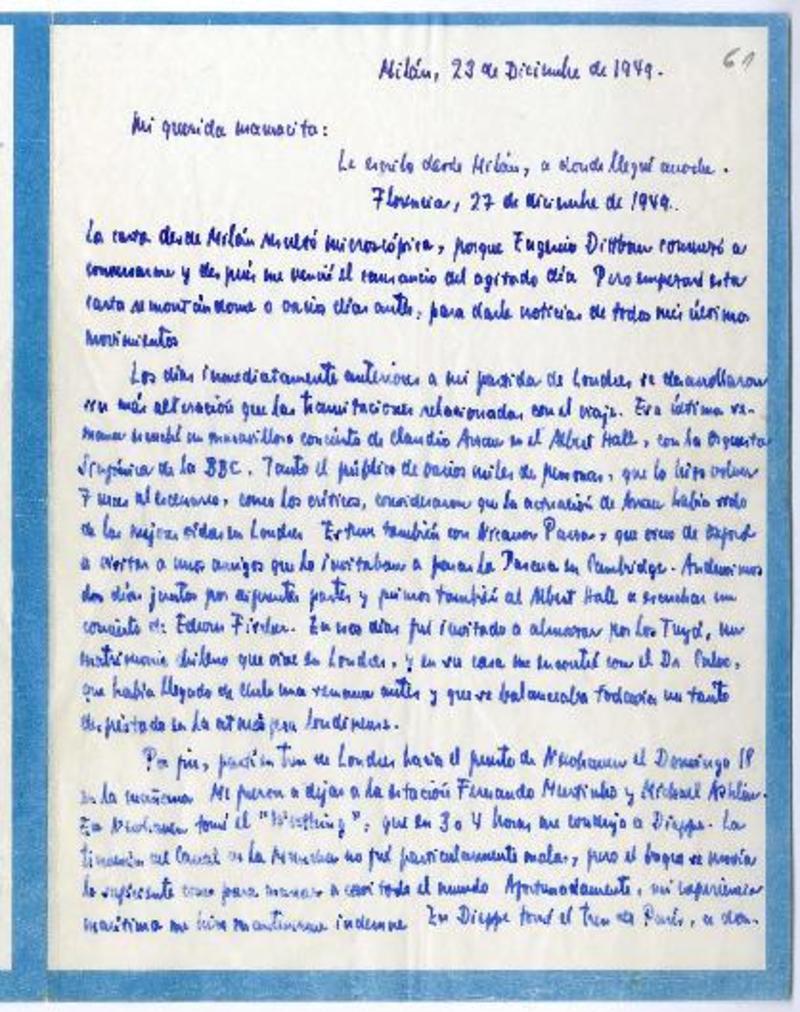 61
Milán, 23 de Diciembre de 1949.
Mi querida mamacita:
Le escribo desde Milán, a donde llegué anoche.
Florencia, 27 de diciembre de 1949.
La carta desde Milán resultó microscópica, porque Eugenio Dittborn comenzó a
conversarme y después me venció el cansancio del agitado día Pero empezaré esta
carta remontándome a varios días antes, para darle noticias de todos mis últimos
movimientos
Los días inmediatamente anteriores a mi partida de Londres se desarrollaron
sin más alteración que las tramitaciones relacionadas con el viaje. Esa última se-
mana escuché un maravilloso concierto de Claudio Arrau en el Albert Hall, con la Orquesta
Sinfónica de la BBC. Tanto el público de varios miles de personas, que lo hizo volver
7 veces al escenario, como los críticos, consideraron que la actuación de Arrau había sido
de las mejores oídas en Londres Estuve también con Nicanor Parra, que vino de Oxford
a visitar a unos amigos que lo invitaban a pasar la Pascua en Cambridge. Anduvimos
dos días juntos por diferentes partes y fuimos también al Albert Hall a escuchar un
concierto de Edwin Fischer. En esos días fui invitado a almorzar por los Tuyá, un
matrimonio chileno que vive en Londres, y en su casa me encontré con el Dr.
que había llegado de Chile una semana antes y que se balanceaba todavía un tanto
despistado en la atmósfera londinense.
Por fin, partí en tren de Londres hacia el puerto de Newhaven el Domingo 18
en la mañana Me fueron a dejar a la estación Fernando y Michael
En Newhaven tomé el "Worthing", que en 3 o 4 horas me condujo a Dieppe. La
del Canal de la Mancha no fué particularmente mala, pero el buque se movía
lo suficiente como para marear a casi todo el mundo Afortunadamente, mi experiencia
marítima me hizo mantenerme indemne En Dieppe tomé el tren a París, a don-